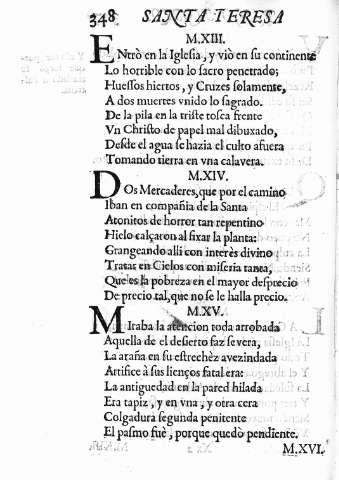 348 SANTA TERESA
M.XIII.
ENtrò en la Iglesia, y viò en su continente
Lo horrible con lo sacro penetrado;
Huessos hiertos, y Cruzes solamente,
A dos muertes vnido lo sagrado.
De la pila en la triste tosca frente
Vn Christo de papel mal dibuxado,
Desde el agua se hazia el culto afuera
Tomando tierra en vna calavera.
M.XIV.
DOs Mercaderes, que por el camino
Iban en compañia de la Santa
Atonitos de horror tan repentino
Hielo calçaron al fixar la planta:
Grangeando alli con interès divino
Tratar en Cielos con miseria tanta,
Que es la pobreza en el mayor desprecio
De precio tal, que no se le halla precio.
M.XV.
MIraba la atencion toda arrobada
Aquella de el desierto faz severa,
La araña en su estrechèz avezindada
Artifice à sus lienços fatal era:
La antiguedad en la pared hilada
Era tapiz, y en vna, y otra cera
Colgadura segunda penitente
El pasmo fuè, porque quedò pendiente.
M.XVI.